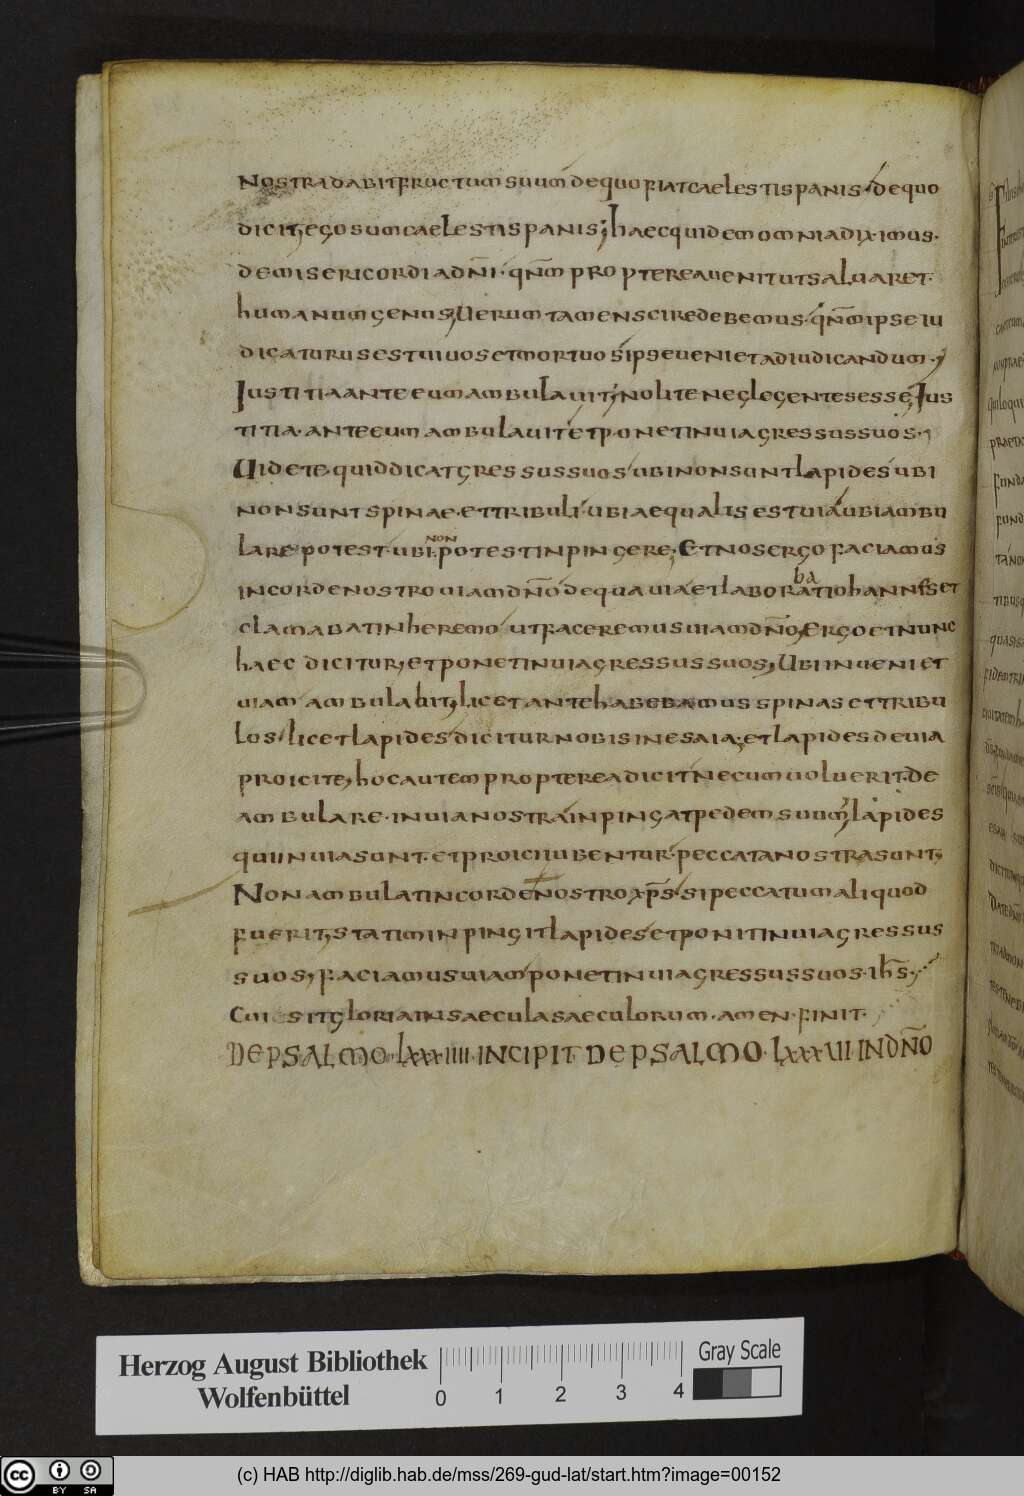 nostra dabit fructum suum de quo fiat caelestis panis. de quo
dicit, ego sum caelestis panis; haec quidem omnia diximus.
de misericordia dn̄i. qn̄m propterea uenit ut saluaret
humanum genus, Uerum tamen scire debemus. qn̄m ipse iu
dicaturus est uiuos et mortuos ipse ueniet adiudicandum.
Iustitia ante eum ambulauit, nolite neglegentes esse, Ius
titia. ante eum ambulauit et ponet in uia gressus suos.
Uidete quid dicat gressus suos ubi non sunt lapides ubi
non sunt spinae. et tribuli ubi aequalis est uia ubi ambu
lare potest. ubi non potest inpingere, Et nos ergo faciamus
in corde nostro uiam dn̄o de qua uia et laborabat iohannes et
clamabat in heremo ut faceremus uiam dn̄o, Ergo et nunc
haec dicitur, et ponet in uia gressus suos, Ubi inueniet
uiam ambulabit, licet ante habebamus spinas et tribu
los licet lapides dicitur nobis in esaia; et lapides de uia
proicite, hoc autem propterea dicit necum uoluerit. de
ambulare. in uia nostra inpingat pedem suum, lapides
qui in uia sunt. et proici iubentur. peccata nostra sunt,
Non ambulat in corde nostro xp̄s. si peccatum aliquod
fuerit, statim inpingit lapides et ponit in uia gressus
suos, faciamus uiam ponet in uia gressus suos. ih̄s.
Cui sit gloria in saecula saeculorum. amen. finit.
DE PSALMO. LXXXIIII. INCIPIT DE PSALMO. LXXXVII IN DN̄O
Herzog August Bibliothek
Wolfenbüttel
0 1 2 3 4
Gray Scale
cc BY SA
(c) HAB http://diglib.hab.de/mss/269-gud-lat/start.htm?image=00152